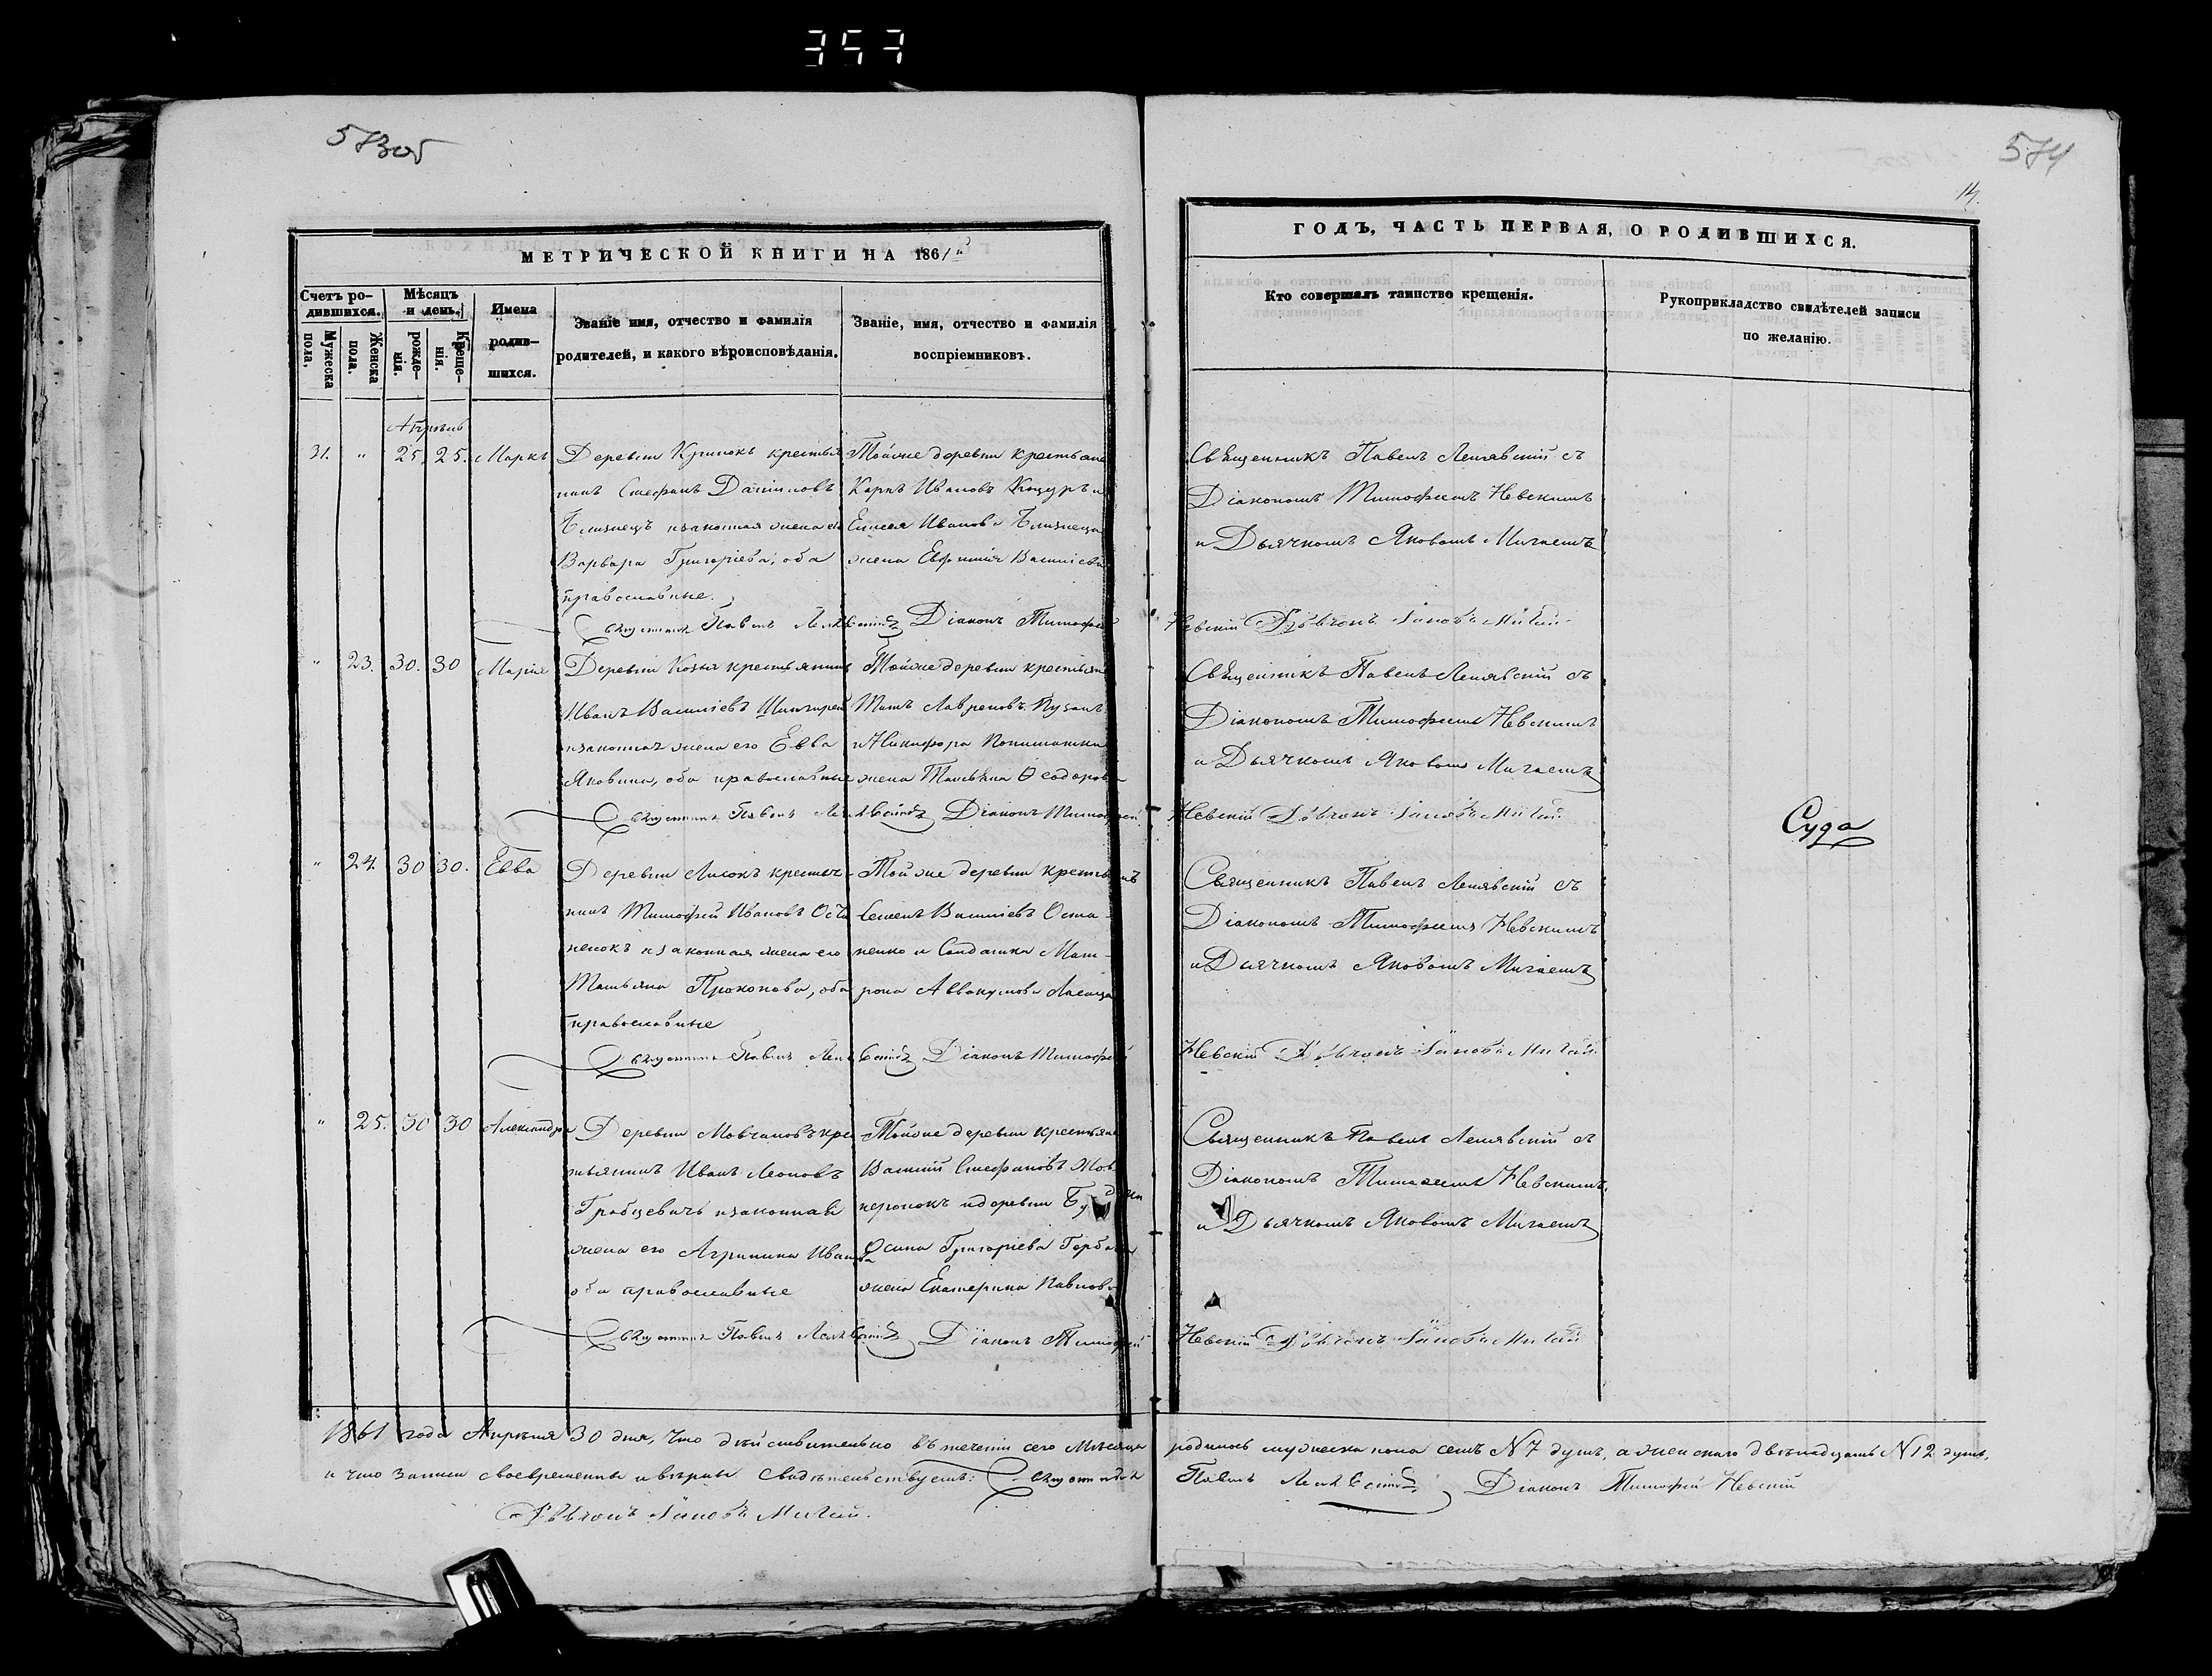 357
573об
574
14.
МЕТРИЧЕСКОЙ КНИГИ НА 1861й
ГОДЪ, ЧАСТЬ ПЕРВАЯ, О РОДИВШИХСЯ.
Счетъ ро-
дившихся.
Мужеска
пола.
Женска
пола.
Мѣсяцъ
и день.
рожде-
нія.
Креще-
нія.
Имена
родив-
шихся.
Званіе имя, отчество и фамилія
родителей, и какого вѣроисповѣданія.
Званіе, имя, отчество и фамилія
воспріемниковъ.
Кто совершалъ таинство крещенія.
Рукоприкладство свидѣтелей записи
по желанію.
Апрѣль
31. " 25. 25. Маркъ
Деревни Кринокъ крестья
нинъ Стефанъ Даниловъ
Близнецъ и законная жена его
Варвара Григоріева, оба
православные.
Тойже деревни крестьяне
Карпъ Ивановъ Коцуръ и
Елисея Иванова Близнеца
жена Евфимія Василіева
Священникъ Павелъ
Діакономъ Тимофеемъ Невскимъ
и Дьячкомъ Яковомъ Мигаемъ
Священникъ Павелъ Діаконъ Тимофей Невскій Дьячокъ Яковъ Мигай
" 23. 30. 30 Марія
Деревни Козья крестьянинъ
Иванъ Василіевъ
и законная жена его Евва
Яковина, оба православные
Тойже деревни крестьяне
Лавреновъ Пузанъ
и Никифора
жена Татьяна Ѳеодорова
Священникъ Павелъ
Діакономъ Тимофеемъ Невскимъ
и Дьячкомъ Яковомъ Мигаемъ
Священникъ Павелъ Діаконъ Тимофей Невскій Дьячокъ Яковъ Мигай
Суда
" 24. 30 30. Евва
Деревни Лисокъ крестья-
нинъ Тимофей Ивановъ
и законная жена его
Татьяна Прокопова, оба
православные
Тойже деревни крестьянъ
Семенъ Василіевъ Оста-
пенко и Солдатка Мат-
рона Аввакумова
Священникъ Павелъ
Діакономъ Тимофеемъ Невскимъ
и Дьячкомъ Яковомъ Мигаемъ
Священникъ Павелъ Діаконъ Тимофей Невскій Дьячокъ Яковъ Мигай
" 25. 30 30 Александра
Деревни Мовчановъ кре
стьянинъ Иванъ Леоновъ
Грабцевичъ и законная
жена его Агрипина Иванова
оба православные
Тойже деревни крестьяне
Василій Стефановъ
и деревни
Осипа Григоріева
жена Екатерина Павлова
Священникъ Павелъ
Діакономъ Тимофеемъ Невскимъ
и Дьячкомъ Яковомъ Мигаемъ
Священникъ Павелъ Діаконъ Тимофей Невскій Дьячокъ Яковъ Мигай
1861 года Апрѣля 30 дня, что дѣйствительно въ теченіи сего Мѣсяца родилось мужеска пола семь N 7 душъ, а женскаго двѣнадцать N 12 душъ,
и что записи своевременны и вѣрны свидѣтельствуемъ: Священникъ Павелъ Діаконъ Тимофей Невскій
Дьячокъ Яковъ Мигай.